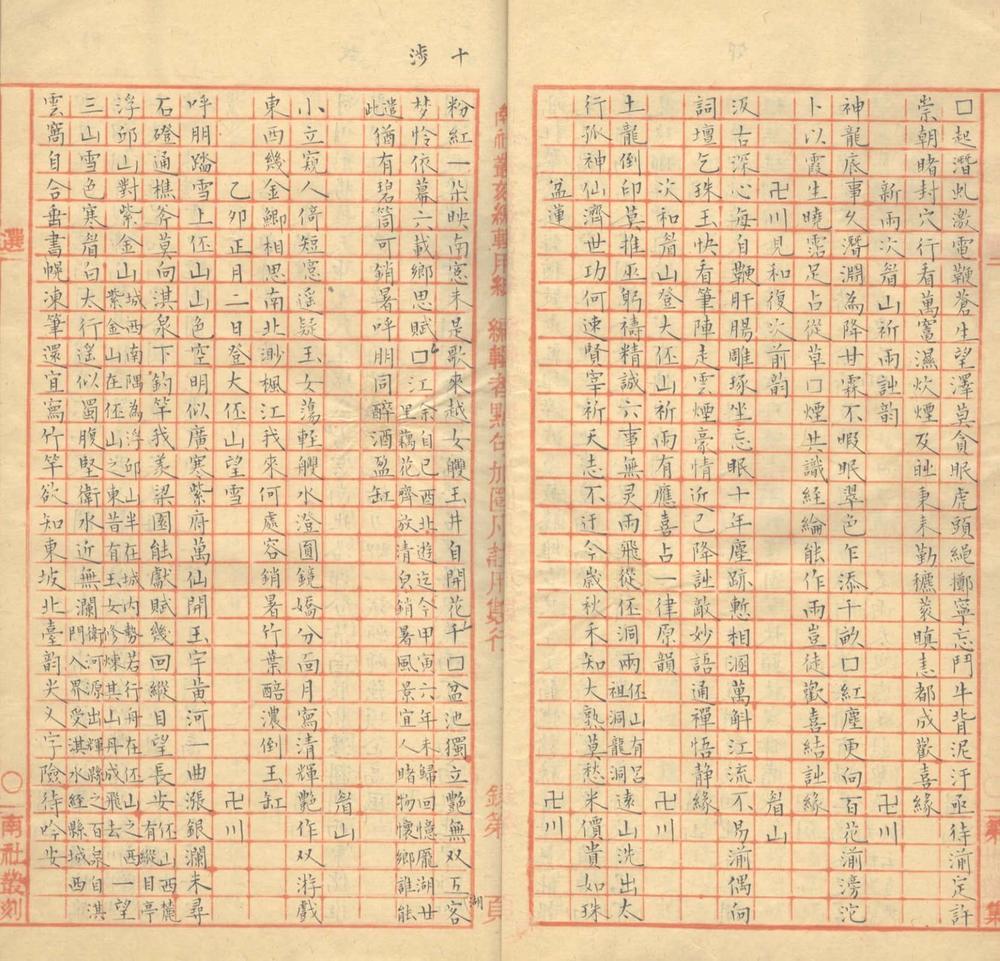 口起潛虬激電鞭蒼生望澤莫貪眠虎頭繩擲寧忘鬥牛背泥汙亟待湔定許
崇朝睹封穴行看萬竈濕炊煙及時東耒勤穮蔉瞋恚都成歡喜緣
新雨次眘山祈雨詘韵 卍川
神龍底事久潛淵為降甘霖不暇眠翠色乍添千畝口紅塵更向百花湔滂沱
卜以霞生曉霑足占從草口煙共識經綸能作雨豈徒歡喜結詘緣
卍川見和復次前韵 眘山
汲古深心每自鞭肝腸雕琢坐忘眠十年塵跡慙相溷萬斛江流不易湔偶向
詞壇乞珠玉快看筆陣走雲煙豪情近已降詘敵妙語通禪悟靜緣
次和眘山登大伾山祈雨有應喜占一律原韻 卍川
土龍倒印莫推巫躬禱精誠六事無灵雨飛從伾洞兩伾山有呂祖洞龍洞遠山洗出太
行孤神仙濟世功何速賢宰祈天志不迂今歲秋禾知大熟莫愁米價貴如珠
盆蓮 卍川
十
涉
粉紅一朵映南窻未是歌來越女艭玉井自開花千口盆池獨立艷無双互客
梦怜依幕六載鄉思賦口江余自己酉北遊迄今甲寅六年未歸回憶龎湖廿里藕花齊放清白銷暑風景宜人睹物懷鄉誰能
遣此猶有碧筒可銷暑呼朋同醉酒盈缸
湖
小立窺人倚短窻遥疑玉女蕩輕艭水澄圓鏡嬌分面月寫清輝艷作双游戲
東西幾金鯽相思南北渺楓江我來何處容銷暑竹葉醅濃倒玉缸
乙夘正月二日登大伾山望雪 眘山
呼朋踏雪上伾山山色空明似廣寒紫府萬仙開玉宇黄河一曲漲銀瀾未尋
石磴通樵客莫向淇泉下釣竿我羨梁園能獻賦幾回縱目望長安伾山西麓有縱目亭
浮邱山對紫金山城西南隅為浮邱山半在城内勢若行舟在伾山之西紫金山在伾山之東昔有王女修煉其山丹成飛去一望
三山雪色寒眘白太行遥似蜀腹堅衛水近無瀾衛河源出輝縣之百泉自淇門入界受淇水經縣城西
雲窩自合垂書幌凍筆還宜寫竹竿欲知東坡北臺韵尖义字險待吟安
選
南社叢刻